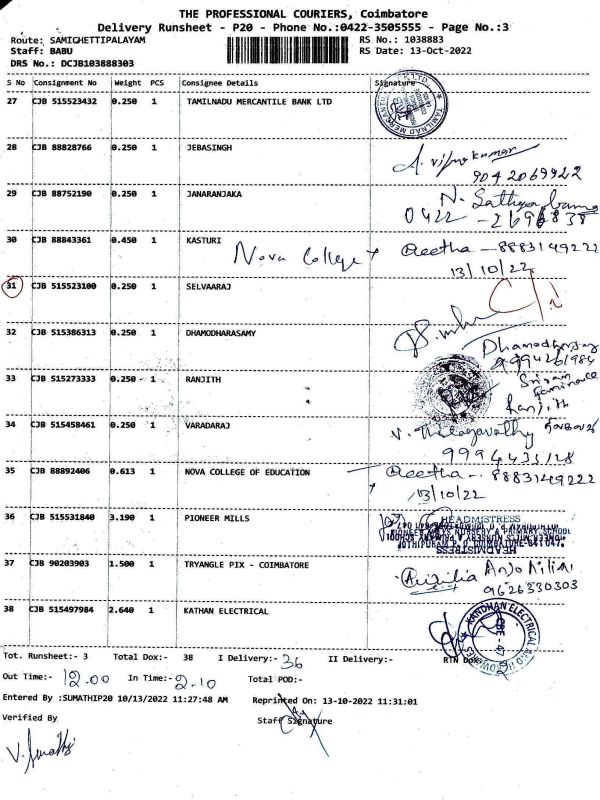 THE PROFESSIONAL COURIERS, Coimbatore
Delivery Runsheet - P20 - Phone No.:0422-3505555 - Page No.:3
Route: SAMICHETTIPALAYAM RS No.: 1038883
Staff: BABU RS Date: 13-Oct-2022
DRS No.: DCJB103888303
S No Consignment No Weight PCS Consignee Details Signature
27 CJB 515523432 0.250 1 TAMILNADU MERCANTILE BANK LTD
28 CJB 88828766 0.250 1 JEBASINGH
9042069922
29 CJB 88752190 0.250 1 JANARANJAKA
0422
30 CJB 88843361 0.450 1 KASTURI Nova College Reetha - 8883149222
13/10/22
31 CJB 515523100 0.250 1 SELVAARAJ
32 CJB 515386313 0.250 1 DHAMODHARASAMY
33 CJB 515273333 0.250 1 RANJITH
Ranjith
34 CJB 515458461 0.250 1 VARADARAJ
35 CJB 88892406 0.613 1 NOVA COLLEGE OF EDUCATION Reetha - 8883149222
13/10/22
36 CJB 515531840 3.190 1 PIONEER MILLS HEADMISTRESS
37 CJB 90203903 1.500 1 TRYANGLE PIX - COIMBATORE
9626330303
38 CJB 515497984 2.640 1 KATHAN ELECTRICAL
Tot. Runsheet:- 3 Total Dox:- 38 I Delivery:- 36 II Delivery:- RTN Dox
Out Time:- 12.00 In Time:- 2-10 Total POD:-
Entered By :SUMATHIP20 10/13/2022 11:27:48 AM Reprinted On: 13-10-2022 11:31:01
Verified By Staff Signature